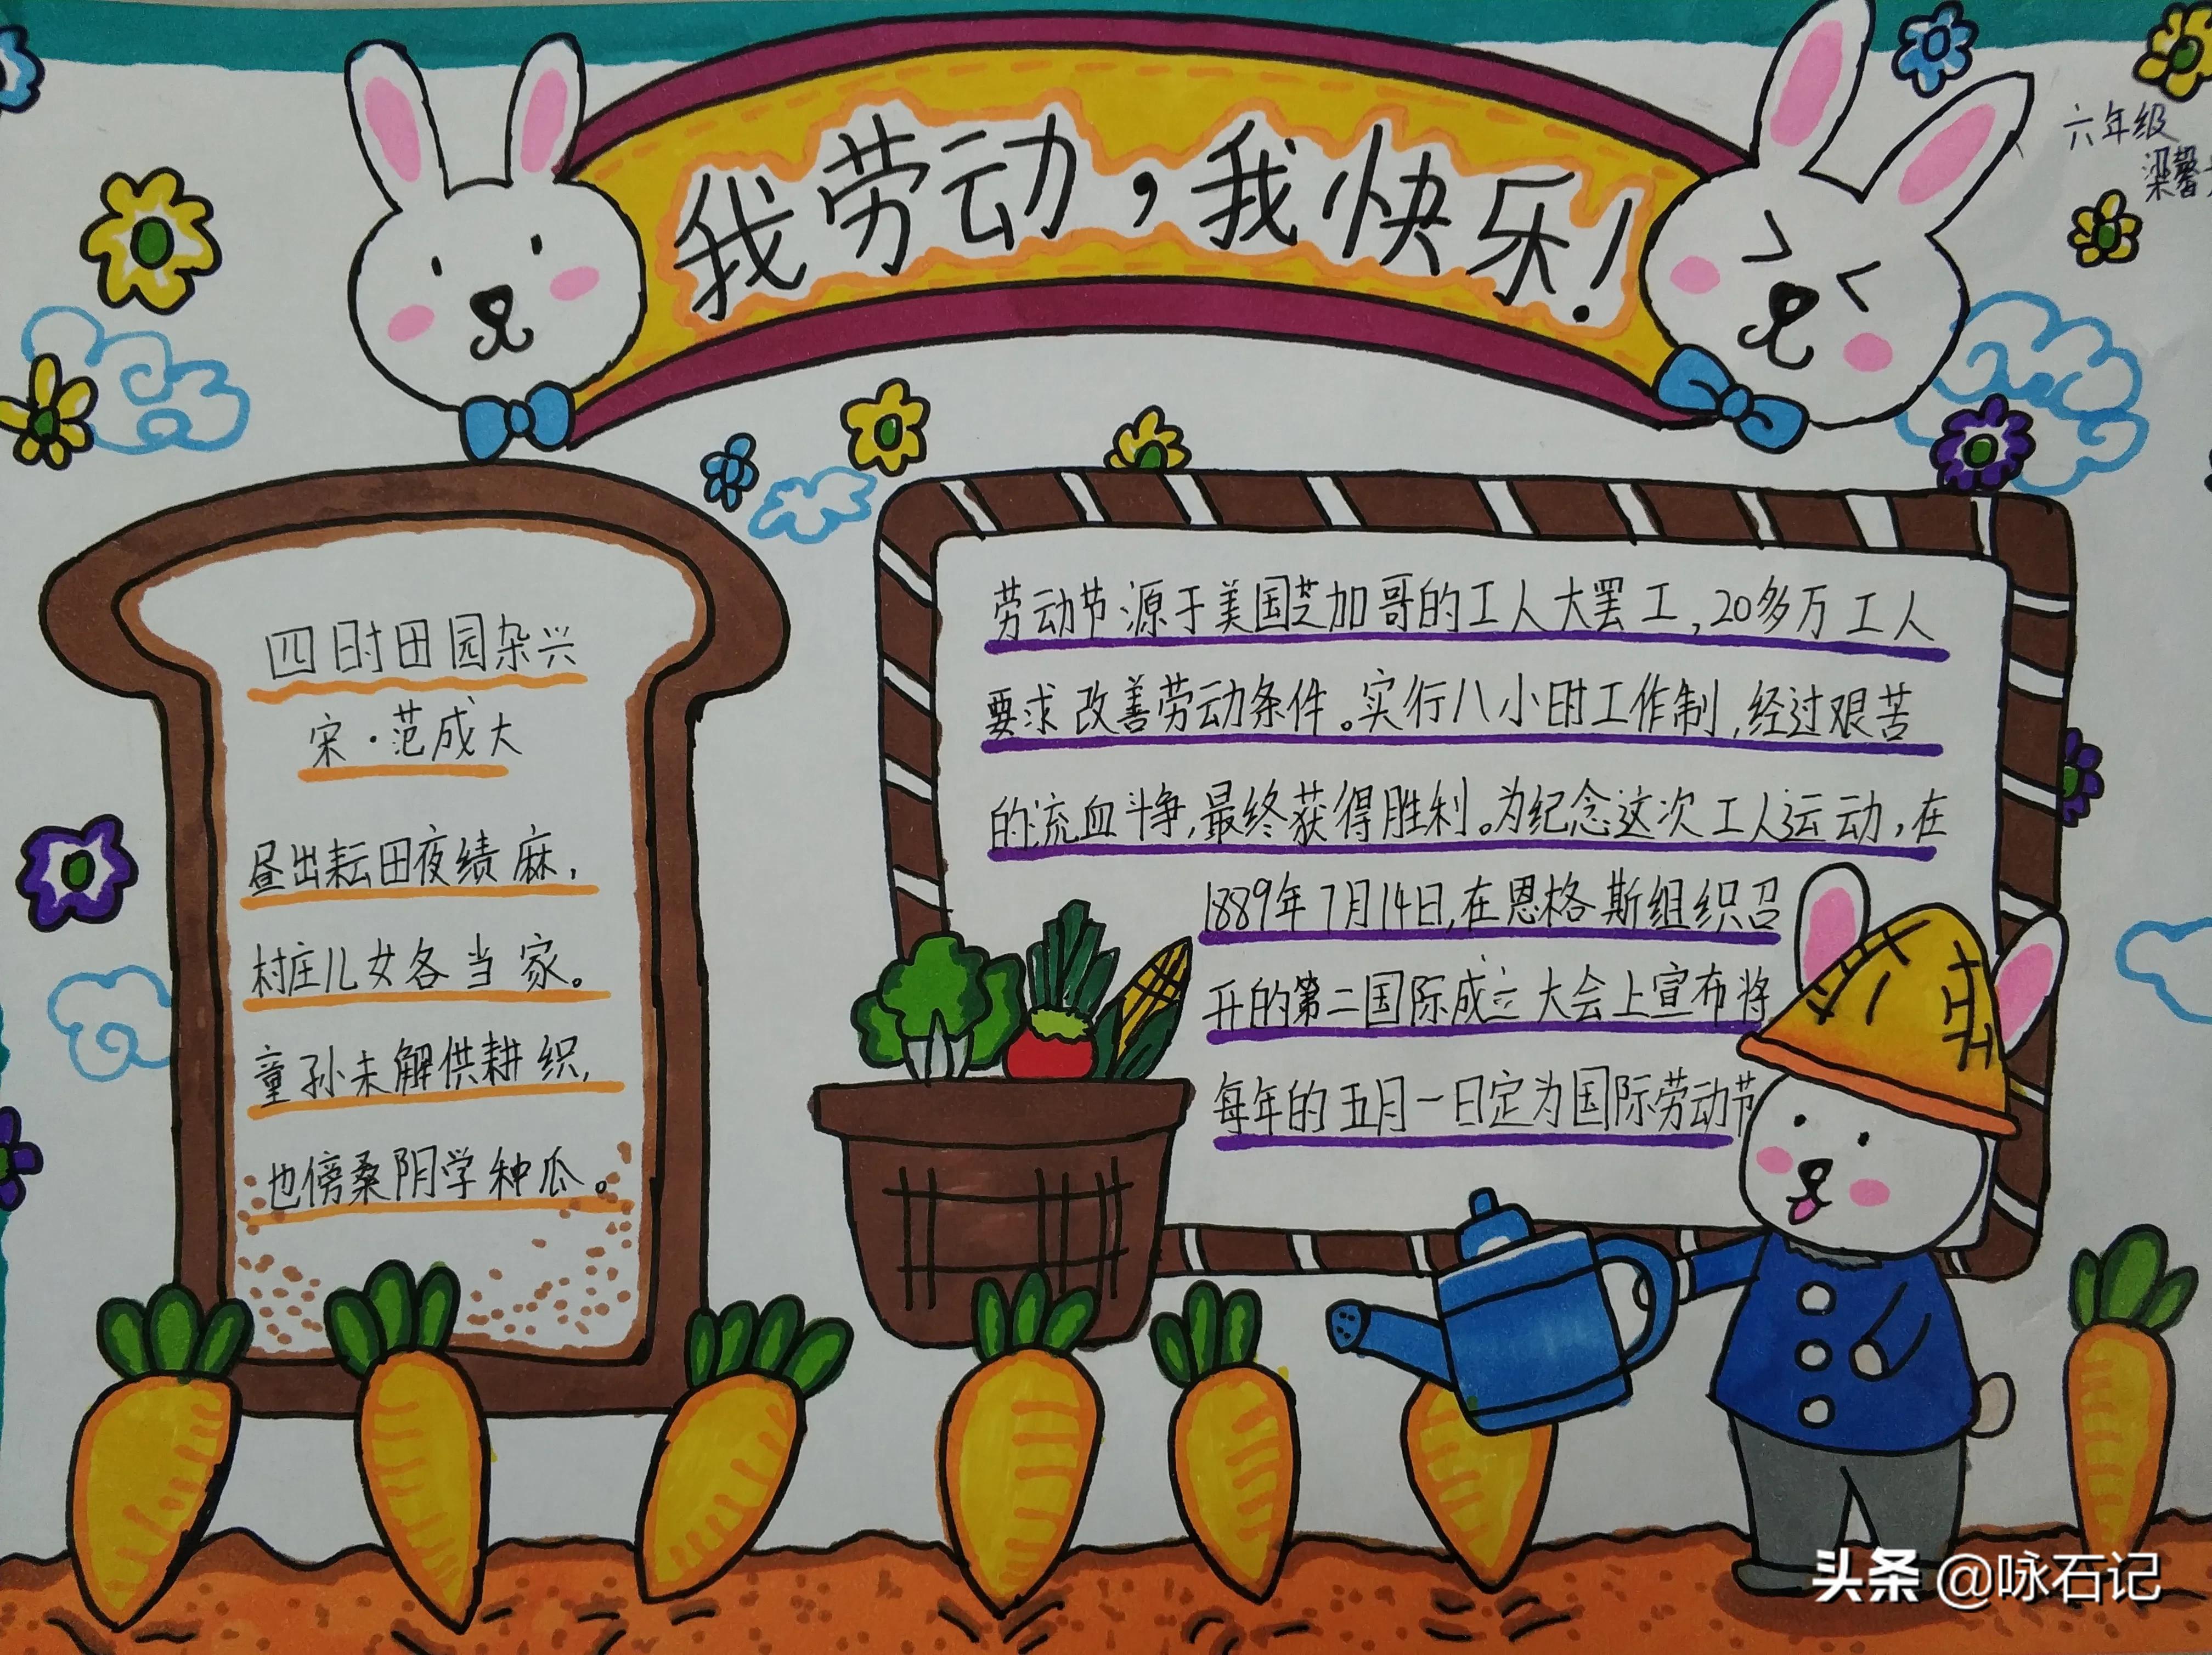 我劳动，我快乐！
六年级
梁馨
四时田园杂兴
宋·范成大
昼出耘田夜绩麻，
村庄儿女各当家。
童孙未解供耕织，
也傍桑阴学种瓜。
劳动节源于美国芝加哥的工人大罢工，20多万工人
要求改善劳动条件。实行八小时工作制，经过艰苦
的流血斗争，最终获得胜利。为纪念这次工人运动，在
1889年7月14日，在恩格斯组织召
开的第二国际成立大会上宣布将
每年的五月一日定为国际劳动节
头条 @咏石记